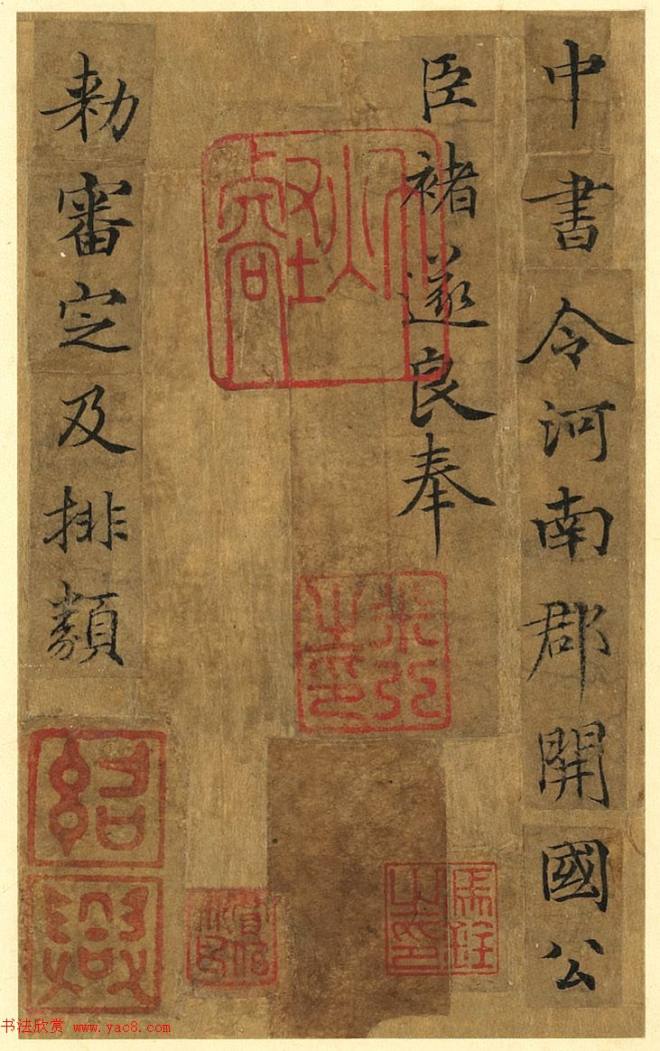 中書令河南郡開國公
臣褚遂良奉
勑審定及排類
紹
興
书法欣赏 www.yac8.com